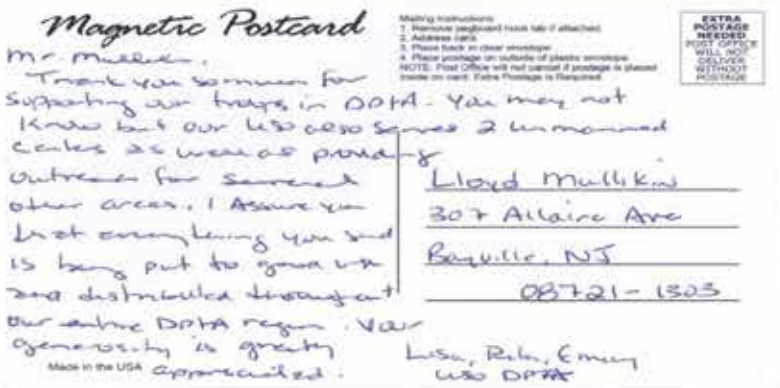 Magnetic Postcard
Mailing Instructions
1. Remove pegboard hook tab if attached.
2. Address card.
3. Place back in clear envelope.
4. Place postage on outside of plastic envelope.
NOTE: Post Office will not cancel if postage is placed
inside on card. Extra Postage is Required
EXTRA
POSTAGE
NEEDED
POST OFFICE
WILL NOT
DELIVER
WITHOUT
POSTAGE
Mr. Mullikin,
Thank you so much for
supporting our troops in DPTA. You may not
know but our USO also serves 2 unmanned
centers as well as providing
outreach for several
other areas. I Assure you
that everything you send
is being put to good use
and distributed throughout
our entire DPTA region. Your
generosity is greatly
appreciated.
Lloyd Mullikin
307 Allaire Ave
Bayville, NJ
08721-1303
Lisa, Emily
USO DPTA
Made in the USA